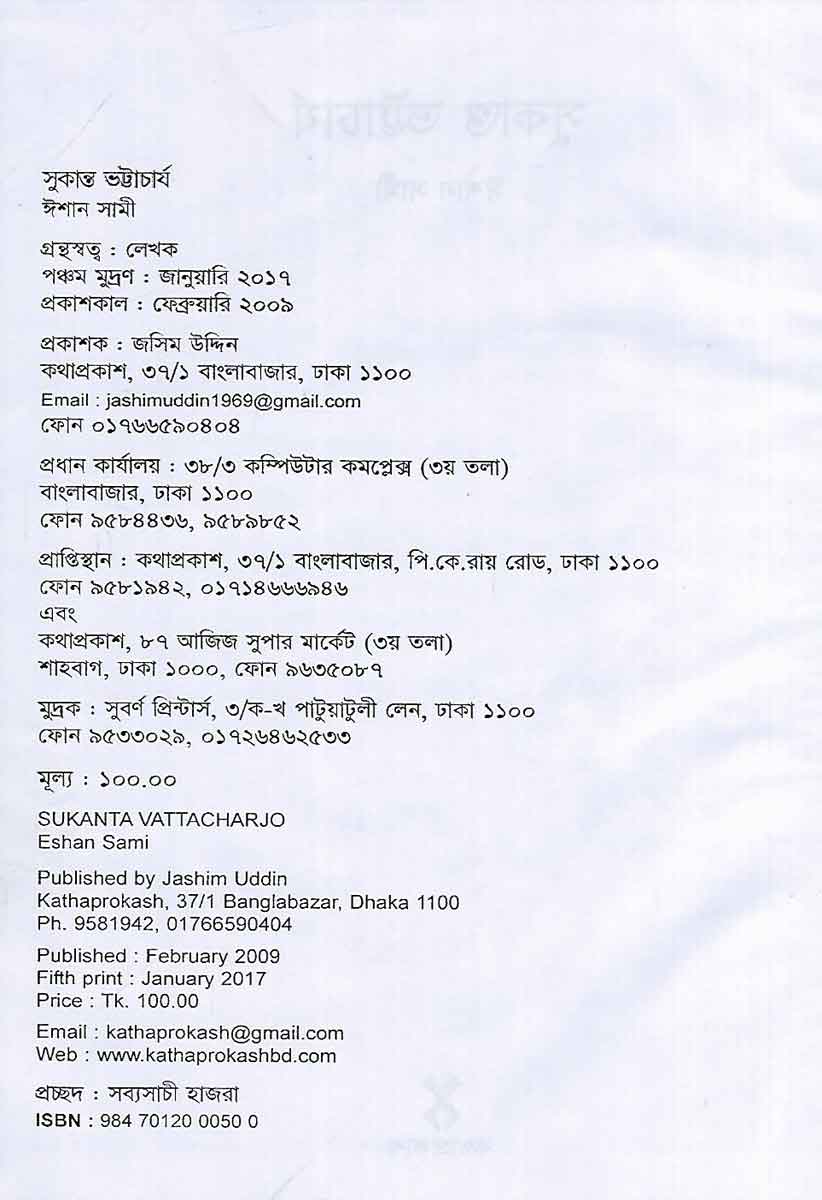 সুকান্ত ভট্টাচার্য
ঈশান সামী
গ্রন্থস্বত্ব : লেখক
পঞ্চম মুদ্রণ : জানুয়ারি ২০১৭
প্রকাশকাল : ফেব্রুয়ারি ২০০৯
প্রকাশক : জসিম উদ্দিন
কথাপ্রকাশ, ৩৭/১ বাংলাবাজার, ঢাকা ১১০০
Email : jashimuddin1969@gmail.com
ফোন ০১৭৬৬৫৯০৪০৪
প্রধান কার্যালয় : ৩৮/৩ কম্পিউটার কমপ্লেক্স (৩য় তলা)
বাংলাবাজার, ঢাকা ১১০০
ফোন ৯৫৮৪৪৩৬, ৯৫৮৯৮৫২
প্রাপ্তিস্থান : কথাপ্রকাশ, ৩৭/১ বাংলাবাজার, পি.কে.রায় রোড, ঢাকা ১১০০
ফোন ৯৫৮১৯৪২, ০১৭১৪৬৬৬৯৪৬
এবং
কথাপ্রকাশ, ৮৭ আজিজ সুপার মার্কেট (৩য় তলা)
শাহবাগ, ঢাকা ১০০০, ফোন ৯৬৩৫০৮৭
মুদ্রক : সুবর্ণ প্রিন্টার্স, ৩/ক-খ পাটুয়াটুলী লেন, ঢাকা ১১০০
ফোন ৯৫৩৩০২৯, ০১৭২৬৪৬২৫৩৩
মূল্য : ১০০.০০
SUKANTA VATTACHARJO
Eshan Sami
Published by Jashim Uddin
Kathaprokash, 37/1 Banglabazar, Dhaka 1100
Ph. 9581942, 01766590404
Published : February 2009
Fifth print : January 2017
Price : Tk. 100.00
Email : kathaprokash@gmail.com
Web : www.kathaprokashbd.com
প্রচ্ছদ : সব্যসাচী হাজরা
ISBN : 984 70120 0050 0